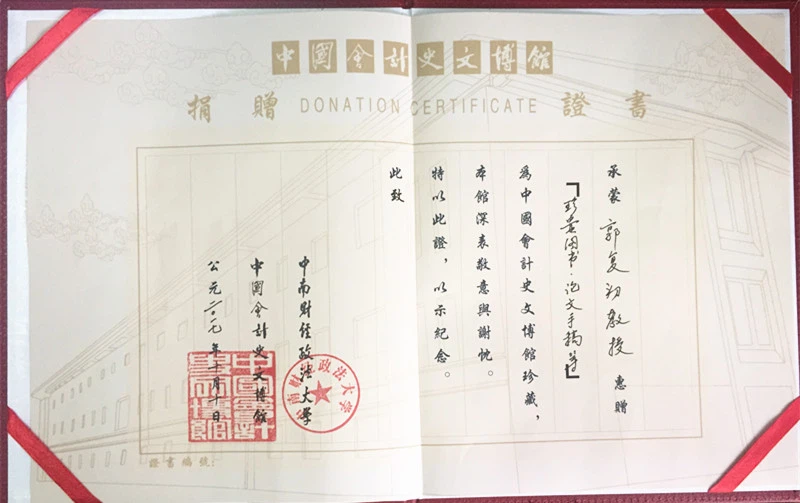 中國會計史文博館
捐贈 DONATION CERTIFICATE 證書
承蒙 郭复初教授 惠贈
「珍贵图书·论文手稿等」
為中國會計史文博館珍藏,
本館深表敬意與謝忱。
特以此證,以示紀念。
此致
中南财经政法大學
中國會計史文博館
公元二〇一七年十月十日
證書編號: